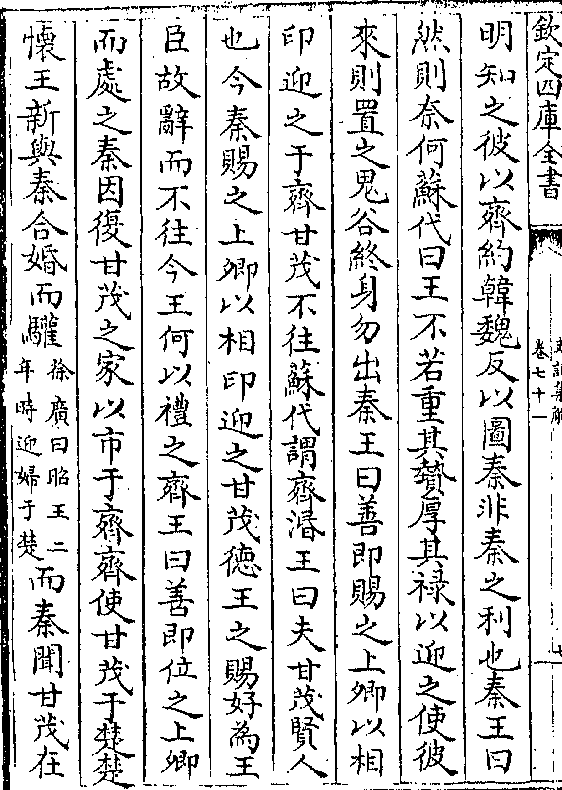 欽定四庫全書
史記集解
卷七十一
明知之彼以齊約韓魏反以圖秦非秦之利也秦王曰
然則奈何蘇代曰王不若重其贄厚其祿以迎之使彼
來則置之鬼谷終身勿出秦王曰善即賜之上卿以相
印迎之于齊甘茂不往蘇代謂齊湣王曰夫甘茂賢人
也今秦賜之上卿以相印迎之甘茂德王之賜好為王
臣故辭而不往今王何以禮之齊王曰善即位之上卿
而處之秦因復甘茂之家以市于齊齊使甘茂于楚楚
懷王新與秦合婚而驩徐廣曰昭王二年時迎婦于楚而秦聞甘茂在